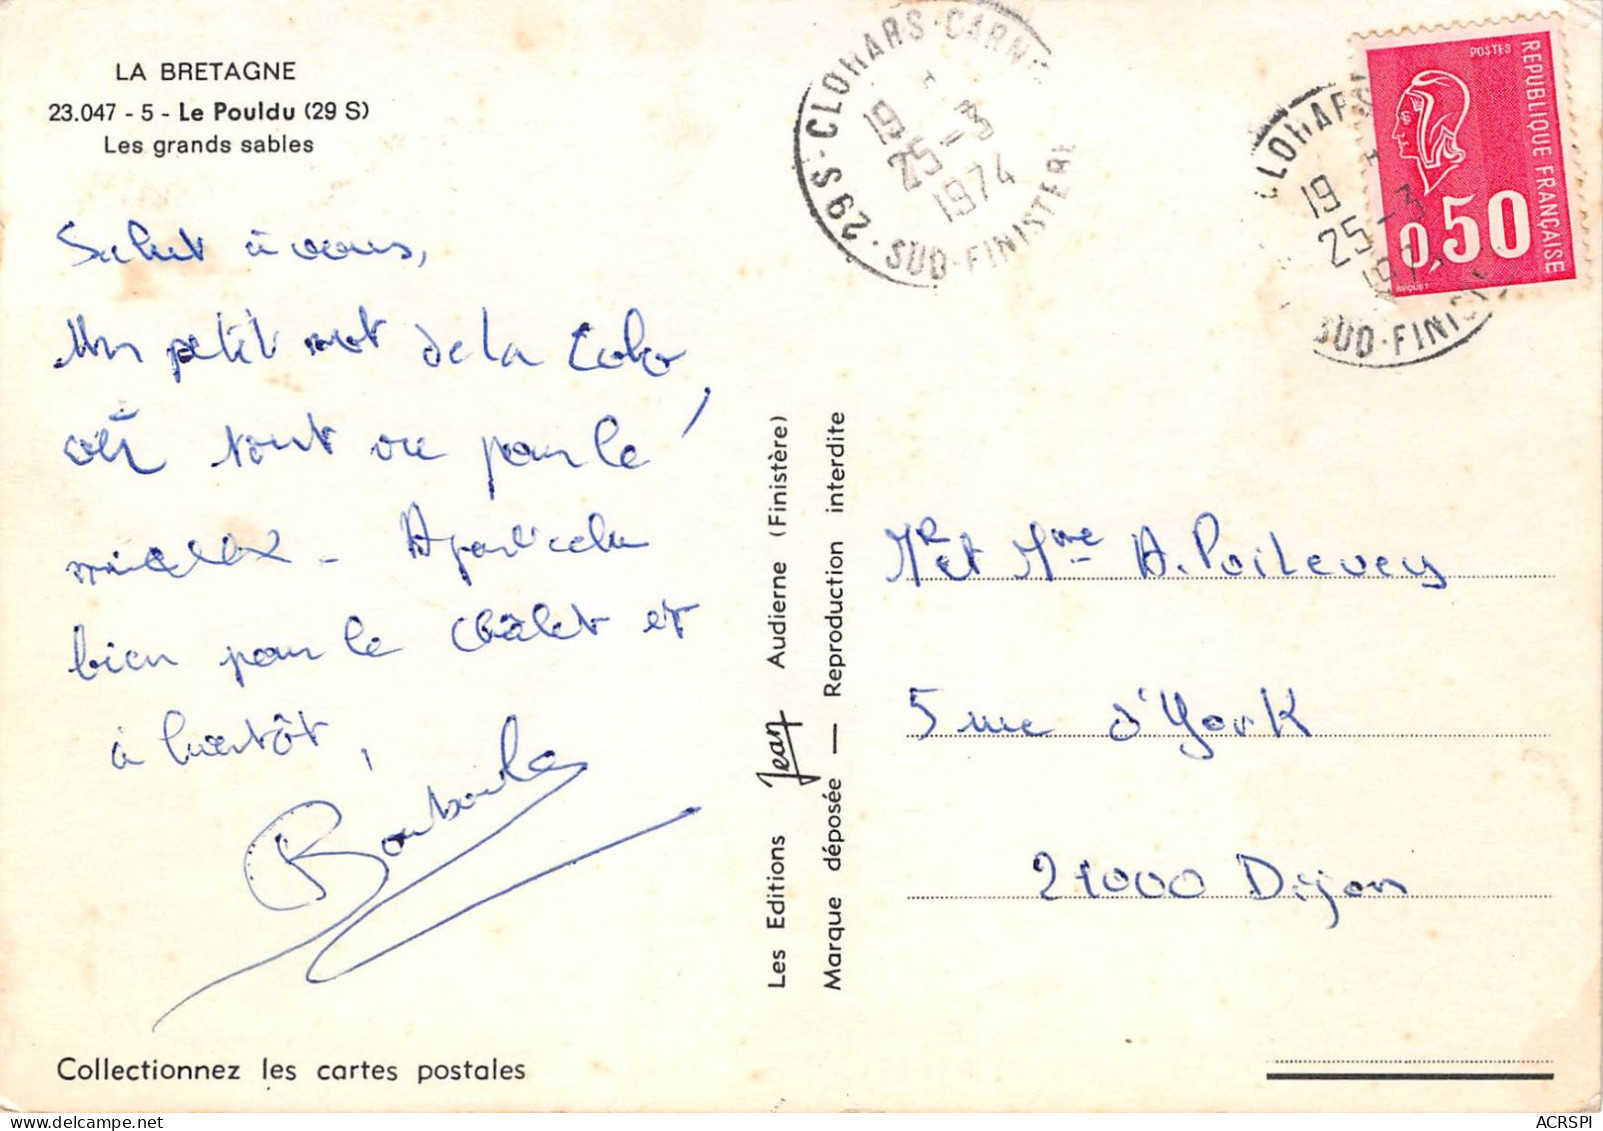 LA BRETAGNE
23.047 - 5 - Le Pouldu (29 S)
Les grands sables
Salut à vous,
Un petit mot de la Colo
où tout va pour le
mieux -
bien pour le châlet et
à bientôt,
Bouboule
Collectionnez les cartes postales
Les Editions Jean Audierne (Finistère)
Marque déposée — Reproduction interdite
29 S · CLOHARS-CARN
19
25-3
1974
SUD-FINISTERE
CLOHARS
19
25-3
1974
SUD-FINIS
POSTES
REPUBLIQUE FRANÇAISE
0,50
Mr et Mme A. Poilevey
5 rue d'York
21000 Dijon
ACRSPI